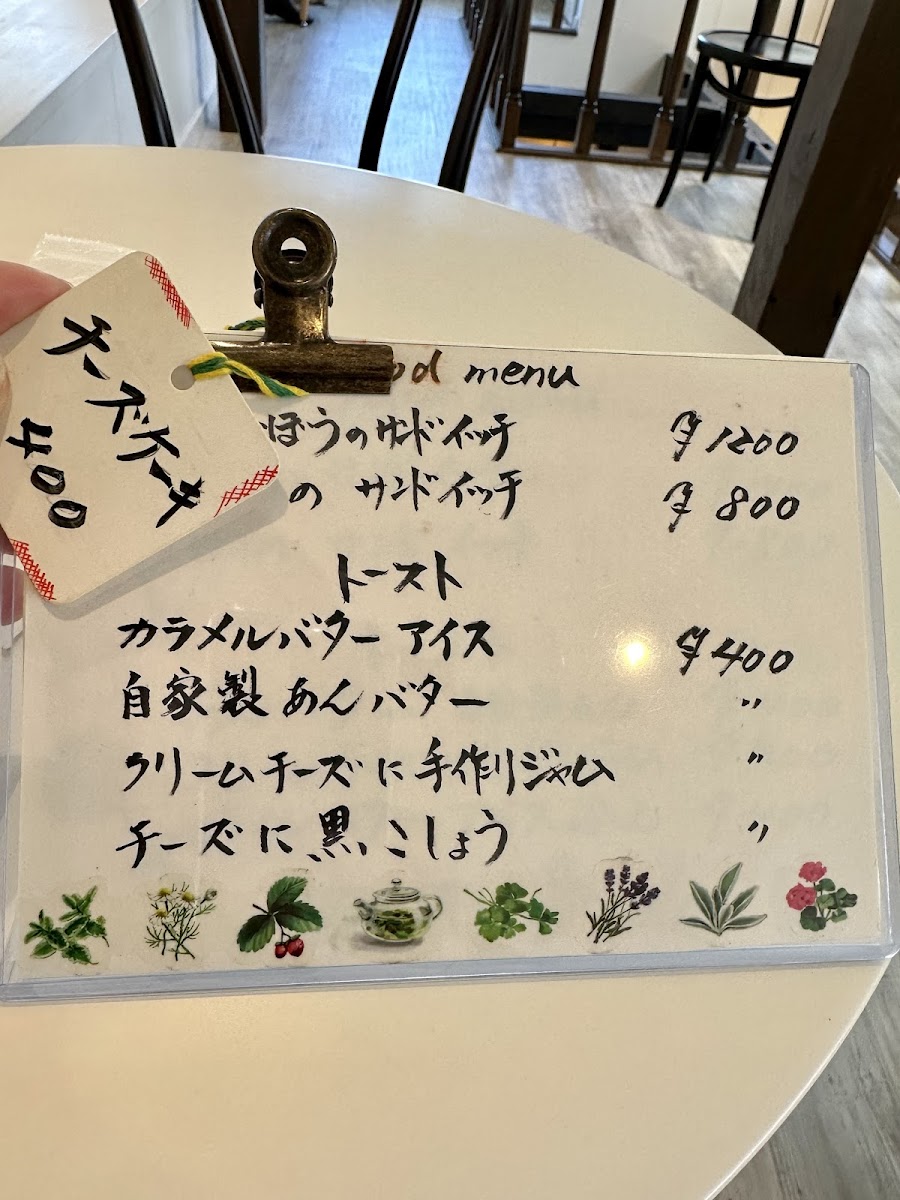 チーズケーキ
400
od menu
ぼうのサンドイッチ ¥1200
の サンドイッチ ¥800
トースト
カラメルバターアイス ¥400
自家製あんバター 〃
クリームチーズに手作りジャム 〃
チーズに黒こしょう 〃